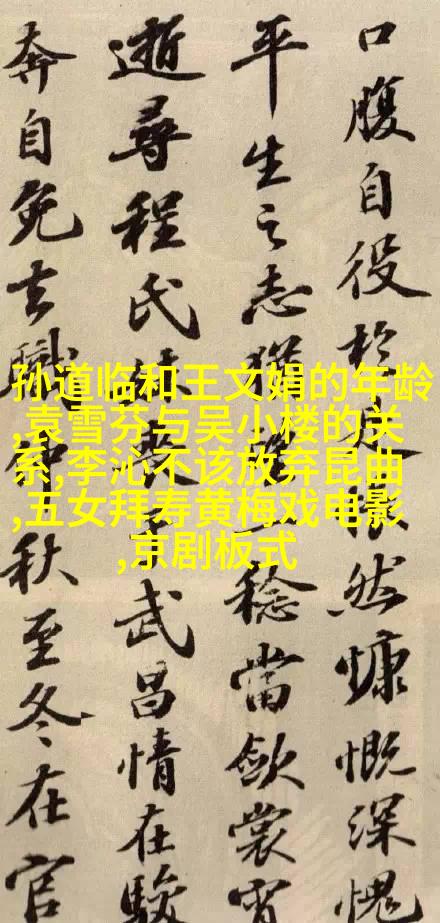 口腹自役於是然慷慨深愧
平生之志猶望稔當斂裳宵
逝尋程氏妹喪武昌情在駿
奔自免去職仲秋至冬在官
孙道临和王文娟的年龄
,袁雪芬与吴小楼的关
系,李沁不该放弃昆曲
,五女拜寿黄梅戏电影
,京剧板式